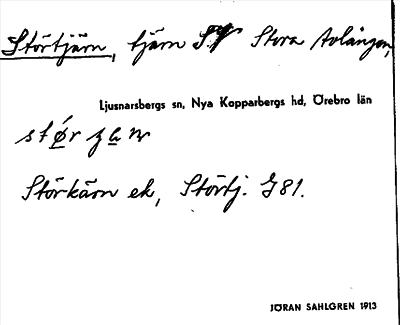 Störtjärn, tjärn S. Stora Avlången,
Ljusnarsbergs sn, Nya Kopparbergs hd, Örebro län
Störkärn ek, Störtj. G 81.
JÖRAN SAHLGREN 1913